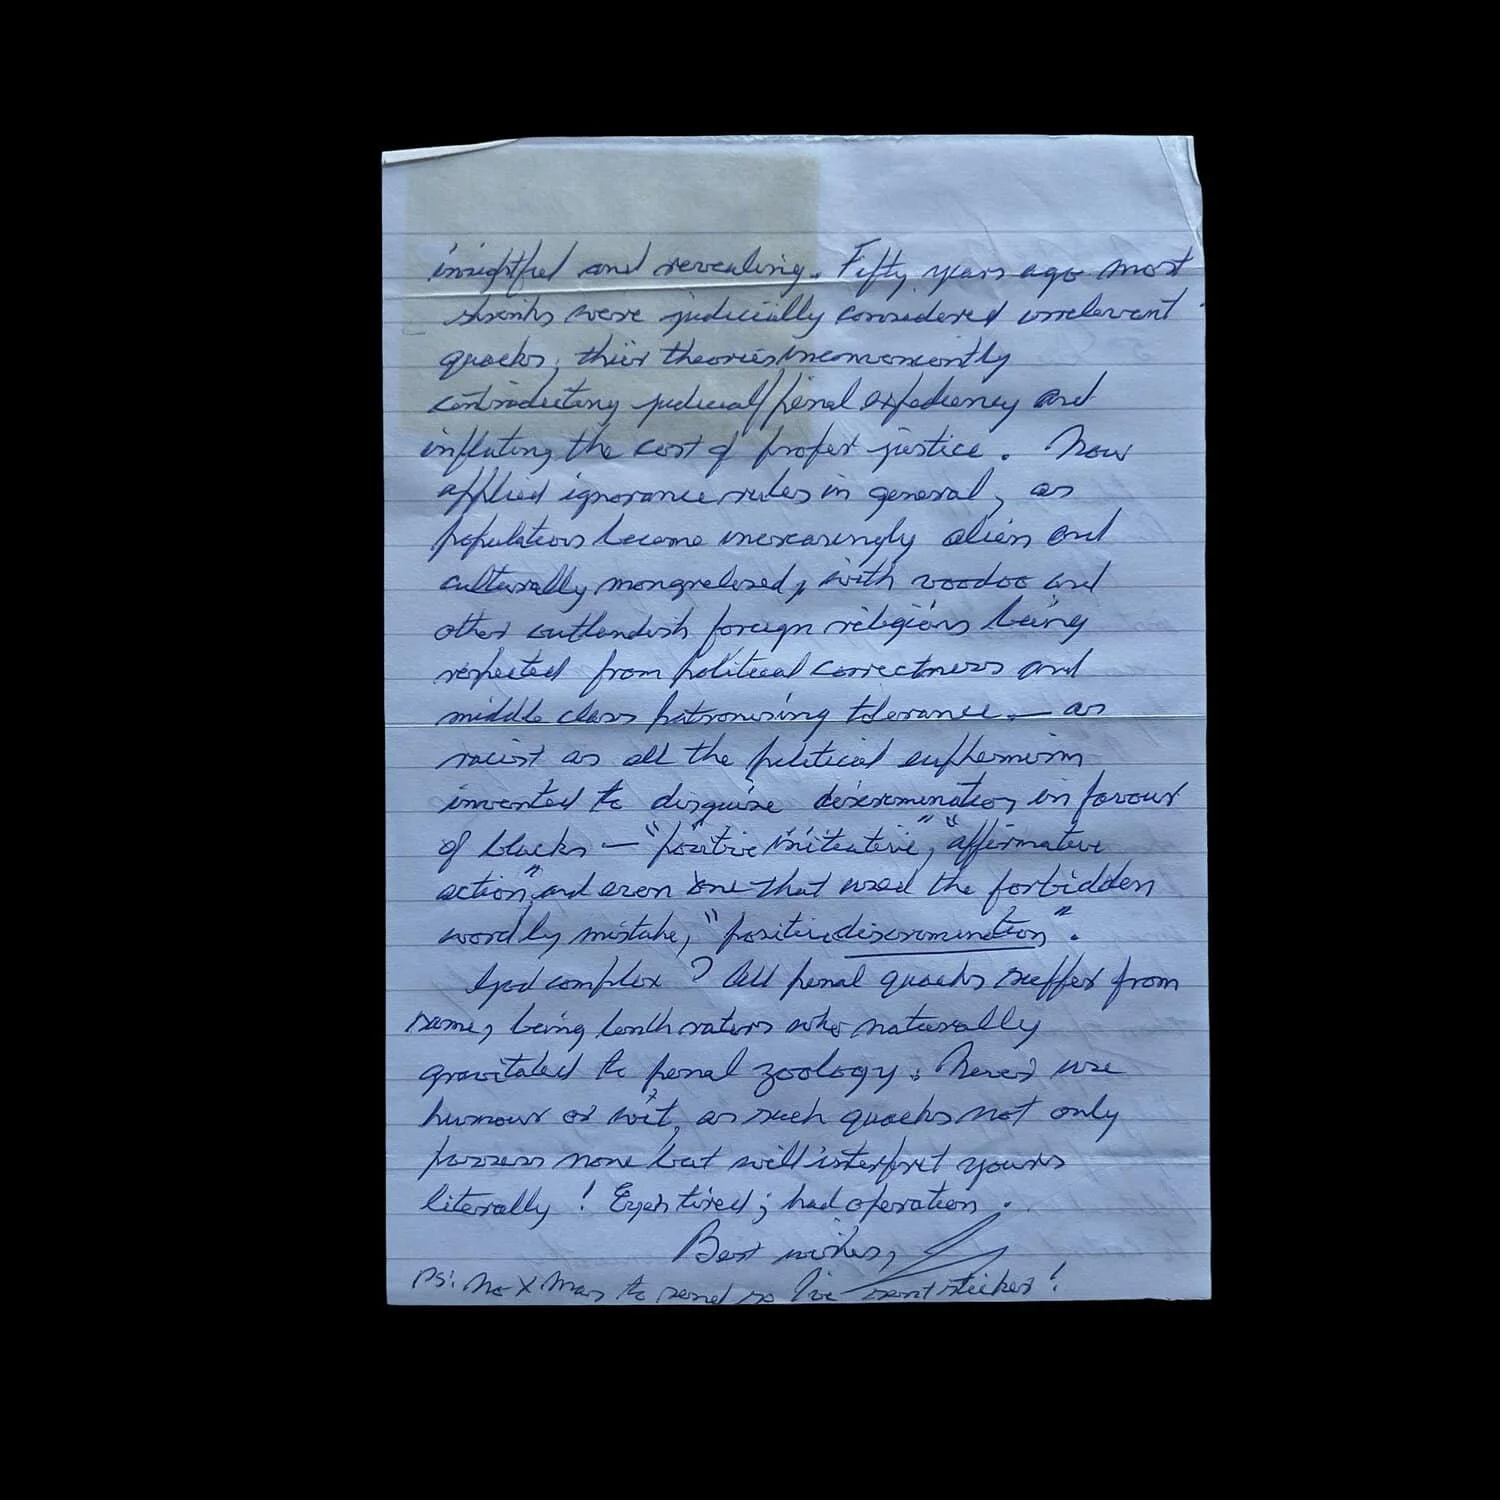 insightful and revealing. Fifty years ago most
shrinks were judicially considered irrelevant
quacks, thier theories inconveniently
contradicting judicial/penal expediency and
inflating the cost of proper justice. Now
applied ignorance rules in general, as
populations become increasingly alien and
culturally mongrelised, with voodoo and
other outlandish foreign religions being
respected from political correctness and
middle class patronising tolerance — as
racist as all the political euphemism
invented to disguise discrimination in favour
of blacks — "positive initiative", "affirmative
action", and even one that used the forbidden
word by mistake, "positive discrimination".
God complex? All penal quacks suffer from
same, being tenth raters who naturally
gravitated to penal zoology. Never use
humour or wit, as such quacks not only
possess none but will interpret yours
literally! Eyes tired; had operation.
Best wishes,
PS: No X Mas to send so I've sent sticker!